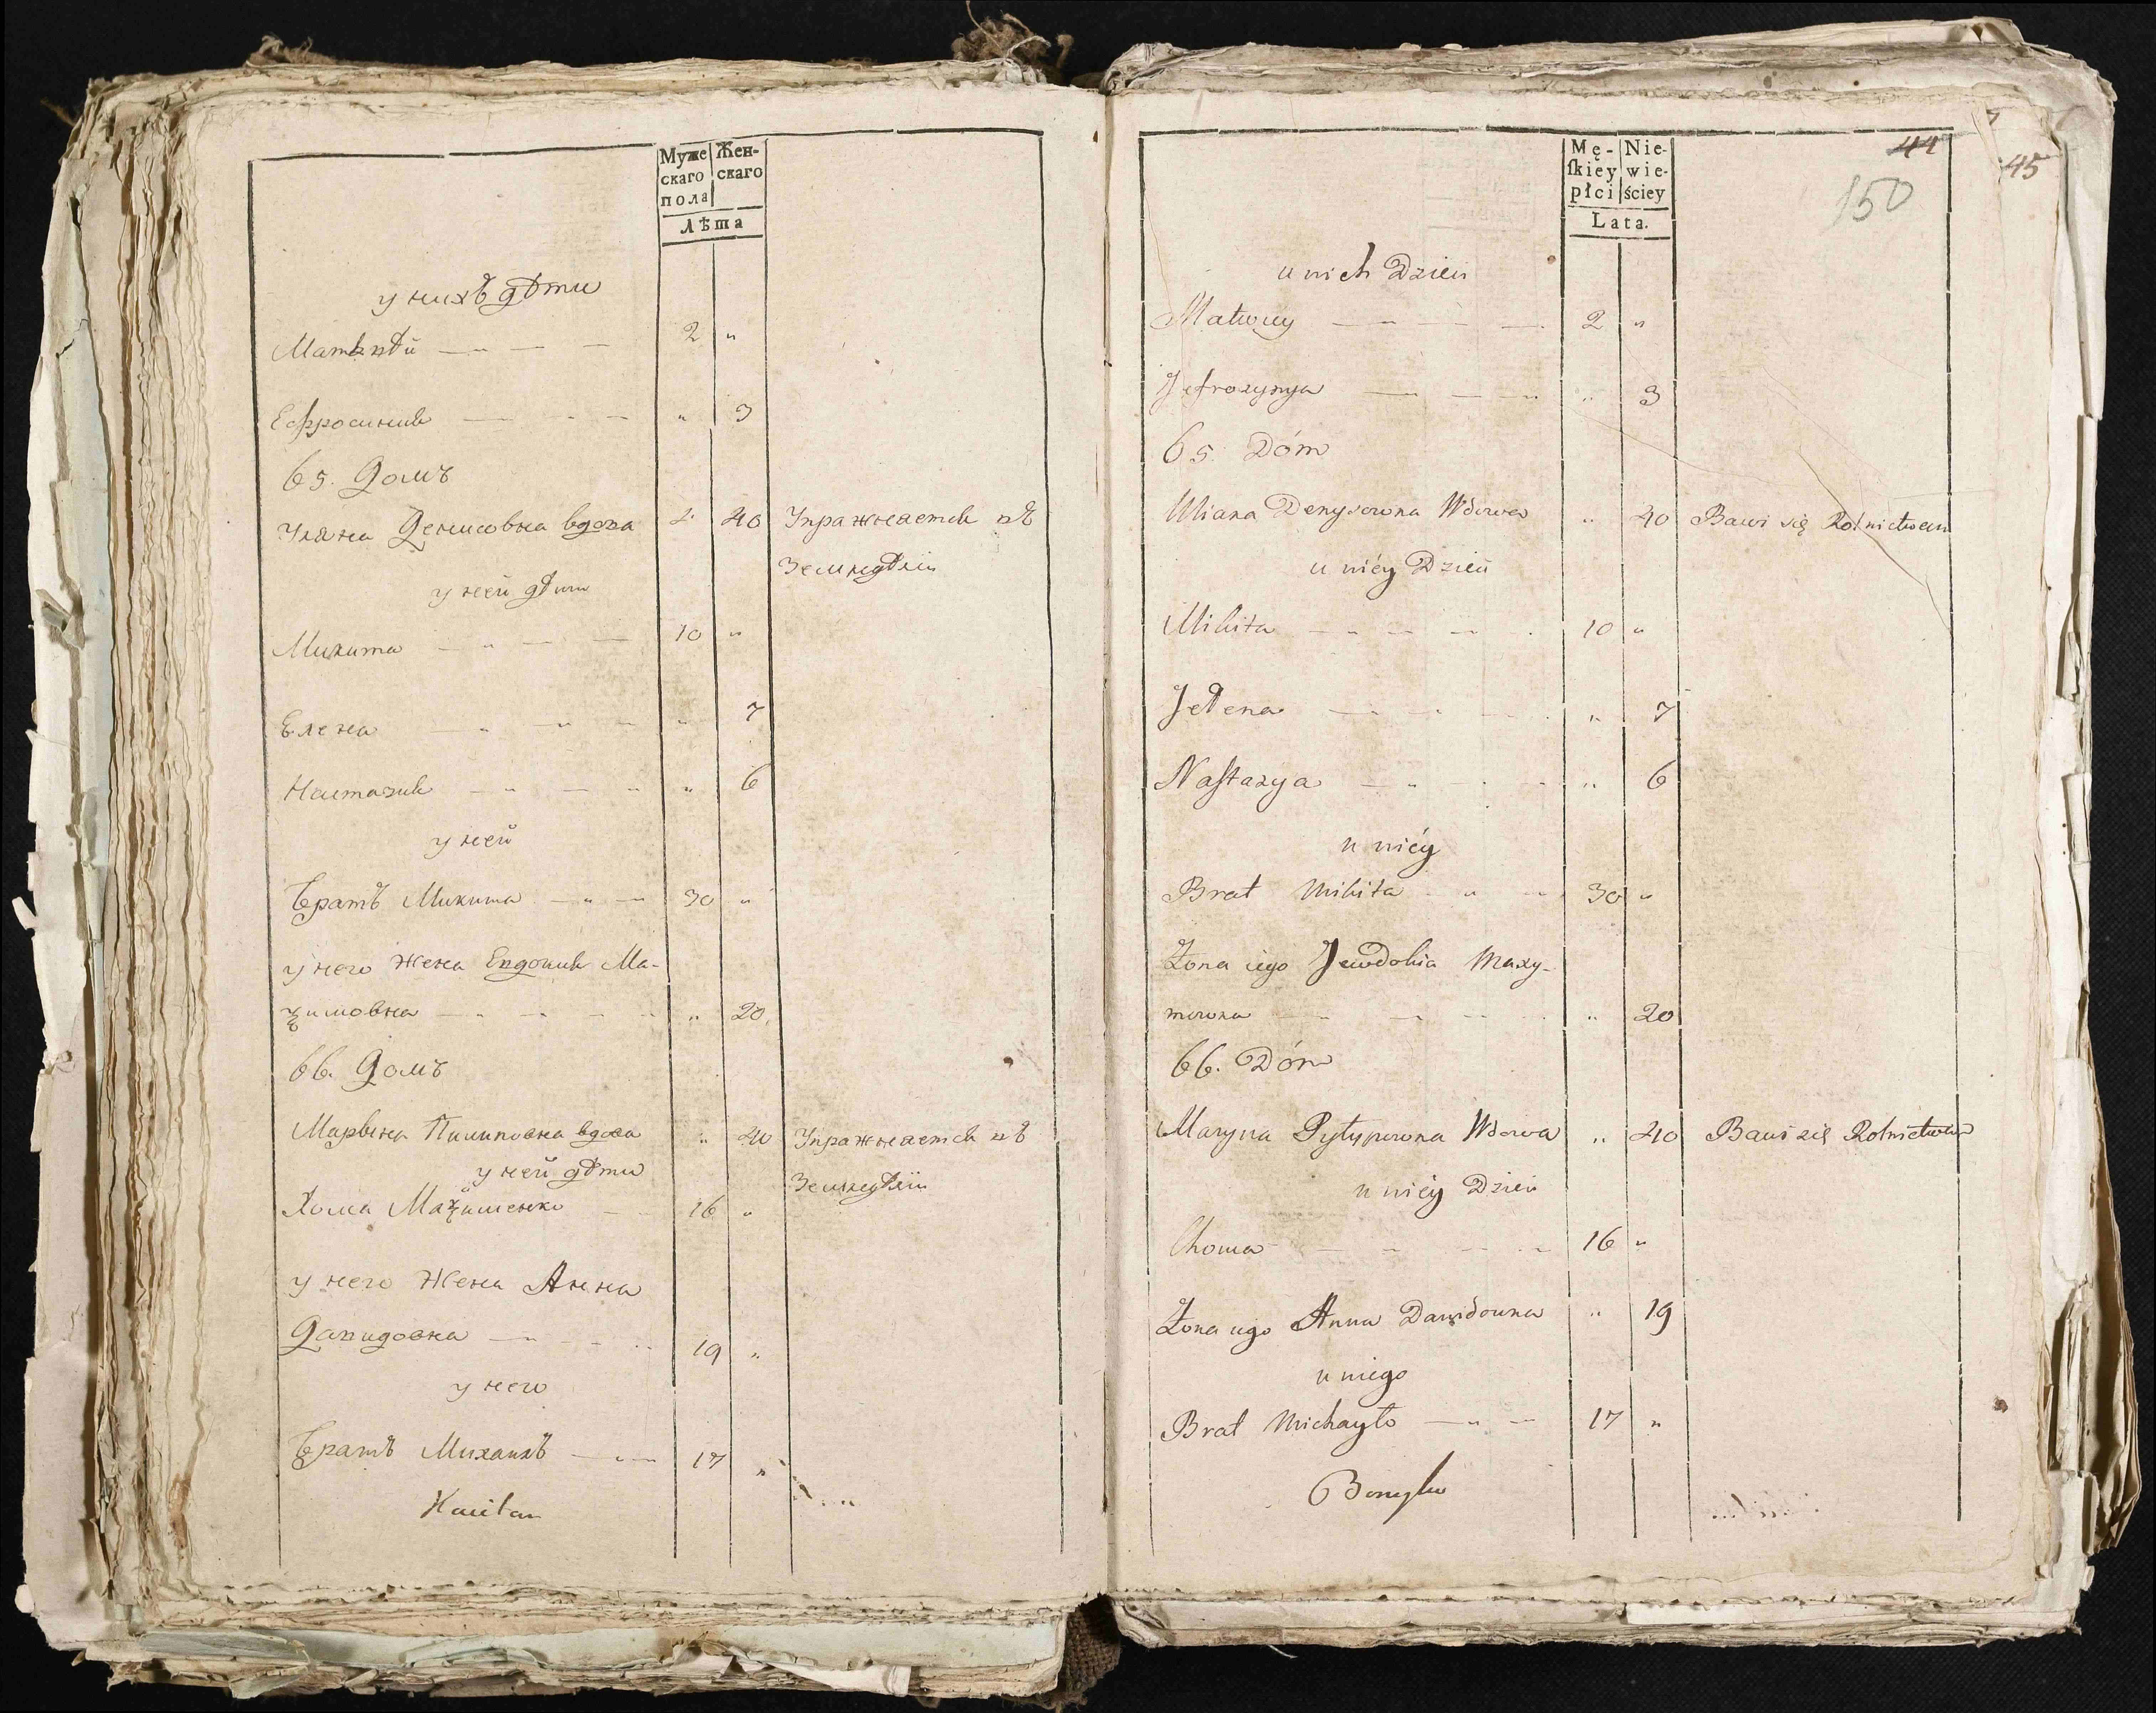 Муже Жен-
скаго скаго
пола
Лѣта
у нихъ дѣти
Матвѣй 2 "
Ефросиния " 3
65. Домъ
Уляна Денисовна вдова 40 Упражнается въ
Земледѣлiи
у ней дѣти
Микита 10 "
Елена " 7
Настазия " 6
у ней
Братъ Микита 30 "
у него Жена Евдокия Ма-
ѯимовна " 20
66. Домъ
Марьина Пилиповна вдова " 40 Упражнается въ
у ней дѣти
Земледѣлiи
Хома Маѯименко 16 "
у него Жена Анна
Давидовна 19 "
у него
Братъ Михаилъ 17 "
Mę- Nie-
ſkiey wie-
płci ściey
Lata.
44
45
150
u nich Dzieci
Matwiey 2 "
Jefrozynya " 3
65. Dóm
Uliana Denysowna Wdowa " 40 Bawi się Rolnictwem
u niéy Dzieci
Mikita 10 "
Jełena " 7
Naſtazya " 6
u niéy
Brat Mikita 30 "
Żona iego Jewdokia Maxy-
mowna " 20
66. Dóm
Maryna Pyłypowna Wdowa " 40 Bawi się Rolnictwem
u niéy Dzieci
Choma 16 "
Żona iego Anna Dawidowna " 19
u niego
Brat Michayło 17 "